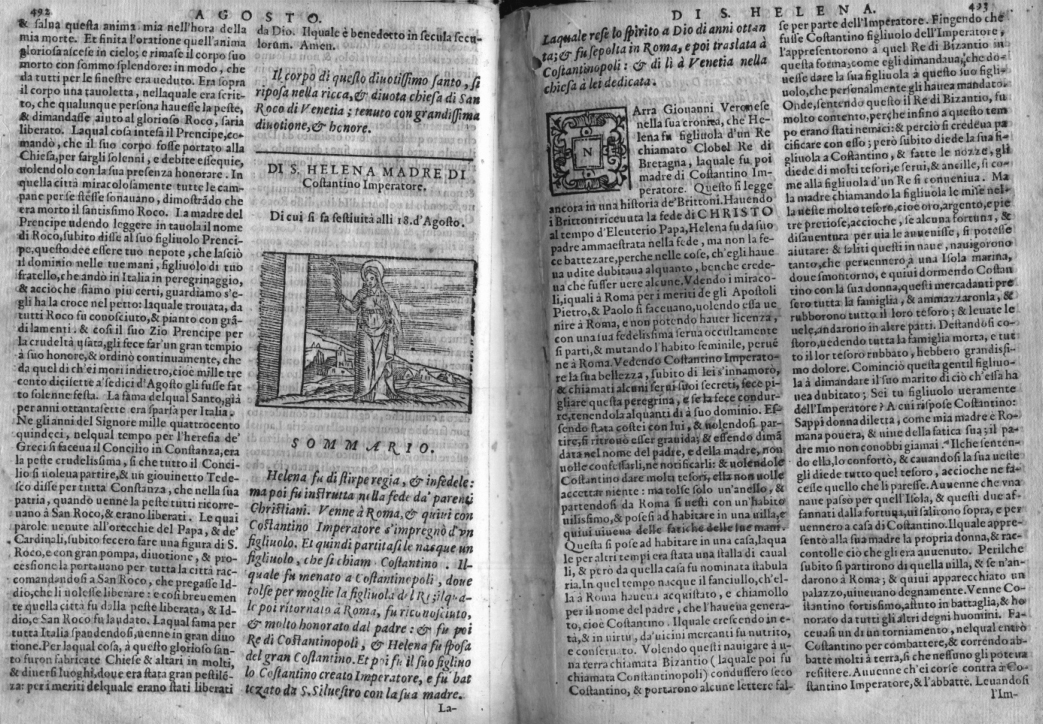 492
AGOSTO.
& salua questa anima mia nell'hora della
mia morte. Et finita l'oratione quell'anima
gloriosa ascese in cielo; e rimase il corpo suo
morto con sommo splendore: in modo, che
da tutti per le finestre era ueduto. Era sopra
il corpo una tauoletta, nellaquale era scrit-
to, che qualunque persona hauesse la peste,
& dimandasse aiuto al glorioso Roco, saria
liberato. Laqual cosa intesa il Prencipe, co-
mandò, che il suo corpo fosse portato alla
Chiesa, per fargli solenni, e debite essequie,
uolendolo con la sua presenza honorare. In
quella città miracolosamente tutte le cam-
pane per se stesse sonauano, dimostrãdo che
era morto il santissimo Roco. La madre del
Prencipe udendo leggere in tauola il nome
di Roco, subito disse al suo figliuolo Prenci-
pe. questo dee essere tuo nepote, che lasciò
il dominio nelle tue mani, figliuolo di tuo
fratello, che andò in Italia in peregrinaggio,
& accioche siamo più certi, guardiamo s'e-
gli ha la croce nel petto: laquale trouata, da
tutti Roco fu conosciuto, & pianto con grã-
di lamenti. & cosi il suo Zio Prencipe per
la crudeltà usata, gli fece far'un gran tempio
à suo honore, & ordinò continuamente, che
da quel dì ch'ei morì indietro, cioè mille tre
cento diciсette a' sedici d'Agosto gli fusse fat
to solenne festa. La fama delqual Santo, già
per anni ottantasette era sparsa per Italia.
Ne gli anni del Signore mille quattrocento
quindeci, nelqual tempo per l'heresia de'
Greci si faceua il Concilio in Constanza, era
la peste crudelissima, sì che tutto il Conci-
lio si uoleua partire, & un giouinetto Tede-
sco disse per tutta Constanza, che nella sua
patria, quando uenne la peste tutti ricorre-
uano à San Roco, & erano liberati. Le quai
parole uenute all'orecchie del Papa, & de'
Cardinali, subito fecero fare una figura di S.
Roco, e con gran pompa, diuotione, & pro-
cessione la portauano per tutta la città rac-
comandandosi a San Roco, che pregasse Id-
dio, che li uolesse liberare: e così breuemen
te quella città fu dalla peste liberata, & Id-
dio, e San Roco fu laudato. Laqual fama per
tutta Italia spandendosi, uenne in gran diuo
tione. Per laqual cosa, à questo glorioso san-
to furon fabricate Chiese & altari in molti,
& diuersi luoghi, doue era stata gran pestilē-
za: per i meriti delquale erano stati liberati
da Dio. Ilquale è benedetto in secula secu-
lorum. Amen.
Il corpo di questo diuotissimo santo, si
riposa nella ricca, & diuota chiesa di San
Roco di Venetia; tenuto con grandissima
diuotione, & honore.
DI S. HELENA MADRE DI
Costantino Imperatore.
Di cui si fa festiuità alli 18. d'Agosto.
SOMMARIO.
Helena fu di stirpe regia, & infedele:
ma poi fu instrutta nella fede da' parenti
Christiani. Venne à Roma, & quiui con
Costantino Imperatore s'impregnò d'un
figliuolo. Et quindi partitasi le nasque un
figliuolo, che si chiam Costantino. Il-
quale fu menato a Costantinopoli, doue
tolse per moglie la figliuola del Re; ilqua-
le poi ritornato à Roma, fu riconosciuto,
& molto honorato dal padre: & fu poi
Re di Costantinopoli, & Helena fu sposa
del gran Costantino. Et poi fu il suo figlino
lo Costantino creato Imperatore, e fu bat
tezato da S. Siluestro con la sua madre.
La-
DI S. HELENA.
493
Laquale rese lo spirito a Dio di anni ottan
ta; & fu sepolta in Roma, e poi traslata à
Costantinopoli: & di lì à Venetia nella
chiesa à lei dedicata.
N
Arra Giouanni Veronese
nella sua cronica, che He-
lena fu figliuola d'un Re
chiamato Clobel Re di
Bretagna, laquale fu, poi
madre di Costantino Im-
peratore. Questo si legge
ancora in una historia de' Brittoni. Hauendo
i Brittoni riceuuta la fede di CHRISTO
al tempo d'Eleuterio Papa, Helena fu da suo
padre ammaestrata nella fede, ma non la fe-
ce battezare, perche nelle cose, ch'egli haue
ua udite dubitaua alquanto, benche crede-
ua che fusser uere alcune. Vdendo i miraco-
li, iquali à Roma per i meriti de gli Apostoli
Pietro, & Paolo si faceuano, uolendo essa ue
nire à Roma, e non potendo hauer licenza,
con una sua fedelissima serua occultamente
si partì, & mutando l'habito feminile, peruē
ne à Roma. Vedendo Costantino Imperato-
re la sua bellezza, subito di lei s'innamorò,
& chiamati alcuni serui suoi secreti, fece pi-
gliare questa peregrina, e se la fece condur-
re, tenendola alquanti dì a suo dominio. Es-
sendo stata costei con lui, & uolendosi par-
tire, si ritrouò esser grauida; & essendo dimã
data nel nome del padre, e della madre, non
uolle confessarli, ne notificarli: & uolendole
Costantino dare molti tesori, ella non uolle
accettar niente: ma tolse solo un'anello, &
partendosi da Roma si uestì con un'habito
uilissimo, & posesi ad habitare in una uilla, e
quiui uiueua delle fatiche delle sue mani.
Questa si pose ad habitare in una casa, laqua
le per altri tempi era stata una stalla di caual
li, & però da quella casa fu nominata stabula
ria. In quel tempo nacque il fanciullo, ch'el-
la à Roma haueua acquistato, e chiamollo
per il nome del padre, che l'haueua genera-
to, cioè Costantino. Ilquale crescendo in e-
tà, & in uirtù, da' uicini mercanti fu nutrito,
e conseruato. Volendo questi nauigare à u-
na terra chiamata Bizantio (laquale poi fu
chiamata Constantinopoli) condussero seco
Costantino, & portarono alcune lettere fal-
se per parte dell'Imperatore. Fingendo che
fusse Costantino figliuolo dell'Imperatore,
l'appresentorono a quel Re di Bizantio in
questa forma; come egli dimandaua, che do-
uesse dare la sua figliuola à questo suo figli-
uolo, che personalmente gli hauea mandato.
Onde, sentendo questo il Re di Bizantio, fu
molto contento, perche infino a questo tem
po erano stati nemici: & perciò si credeua pa
cificare con esso; però subito diede la sua fi-
gliuola a Costantino, & fatte le nozze, gli
diede di molti tesori, e serui, & ancille, sì co-
me alla figliuola d'un Re si conueniua. Ma
la madre chiamando la figliuola le mise nel-
la ueste molto tesoro, cioè oro, argento, e pie
tre pretiose, accioche, se alcuna fortuna, &
disauentura per uia le auuenisse, si potesse
aiutare: & saliti questi in naue, nauigorono
tanto, che peruennero à una Isola marina,
doue smontorno, e quiui dormendo Costan
tino con la sua donna, questi mercadanti pre
sero tutta la famiglia, & ammazzaronla, &
rubborono tutto il loro tesoro; & leuate le
uele, andarono in altre parti. Destandosi co-
storo, uedendo tutta la famiglia morta, e tut
to il lor tesoro rubbato, hebbero grandissi-
mo dolore. Cominciò questa gentil figliuo-
la à dimandare il suo marito di ciò ch'essa ha
uea dubitato; Sei tu figliuolo ueramente
dell'Imperatore? A cui rispose Costantino:
Sappi donna diletta, come mia madre e Ro-
mana pouera, & uiue della fatica sua; il pa-
dre mio non conobbi giamai. Ilche senten-
do ella, lo confortò, & cauandosi la sua ueste
gli diede tutto quel tesoro, accioche ne fa-
cesse quello che li paresse. Auuenne che una
naue passò per quell'Isola, & questi due af-
fannati dalla fortuna, ui salirono sopra, e per
uennero a casa di Costantino. Ilquale appre-
sentò alla sua madre la propria donna, & rac-
contolle ciò che gli era auuenuto. Perilche
subito si partirono di quella uilla, & se n'an-
darono à Roma; & quiui apparecchiato un
palazzo, uiueuano degnamente. Venne Co-
stantino fortissimo, astuto in battaglia, & ho
norato da tutti gli altri degni huomini. Fa-
ceuasi un dì un torniamento, nelqual entrò
Costantino per combattere, & correndo ab-
batte molti à terra, sì che nessuno gli poteua
resistere. Auuenne ch'ei corse contra à Co-
stantino Imperatore, & l'abbatte. Leuandosi
l'Im-